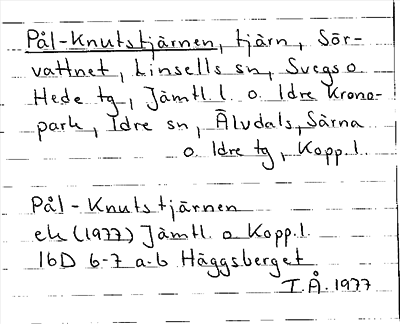 Pål-Knutstjärnen, tjärn, Sör-
vattnet, Linsells sn, Svegs o
Hede tg, Jämtl. l. o. Idre Krono-
park, Idre sn, Älvdals, Särna
o. Idre tg, Kopp. l.
Pål-Knutstjärnen
ek (1977) Jämtl. o Kopp. l.
16D 6-7 a-b Häggsberget
T.Å. 1977